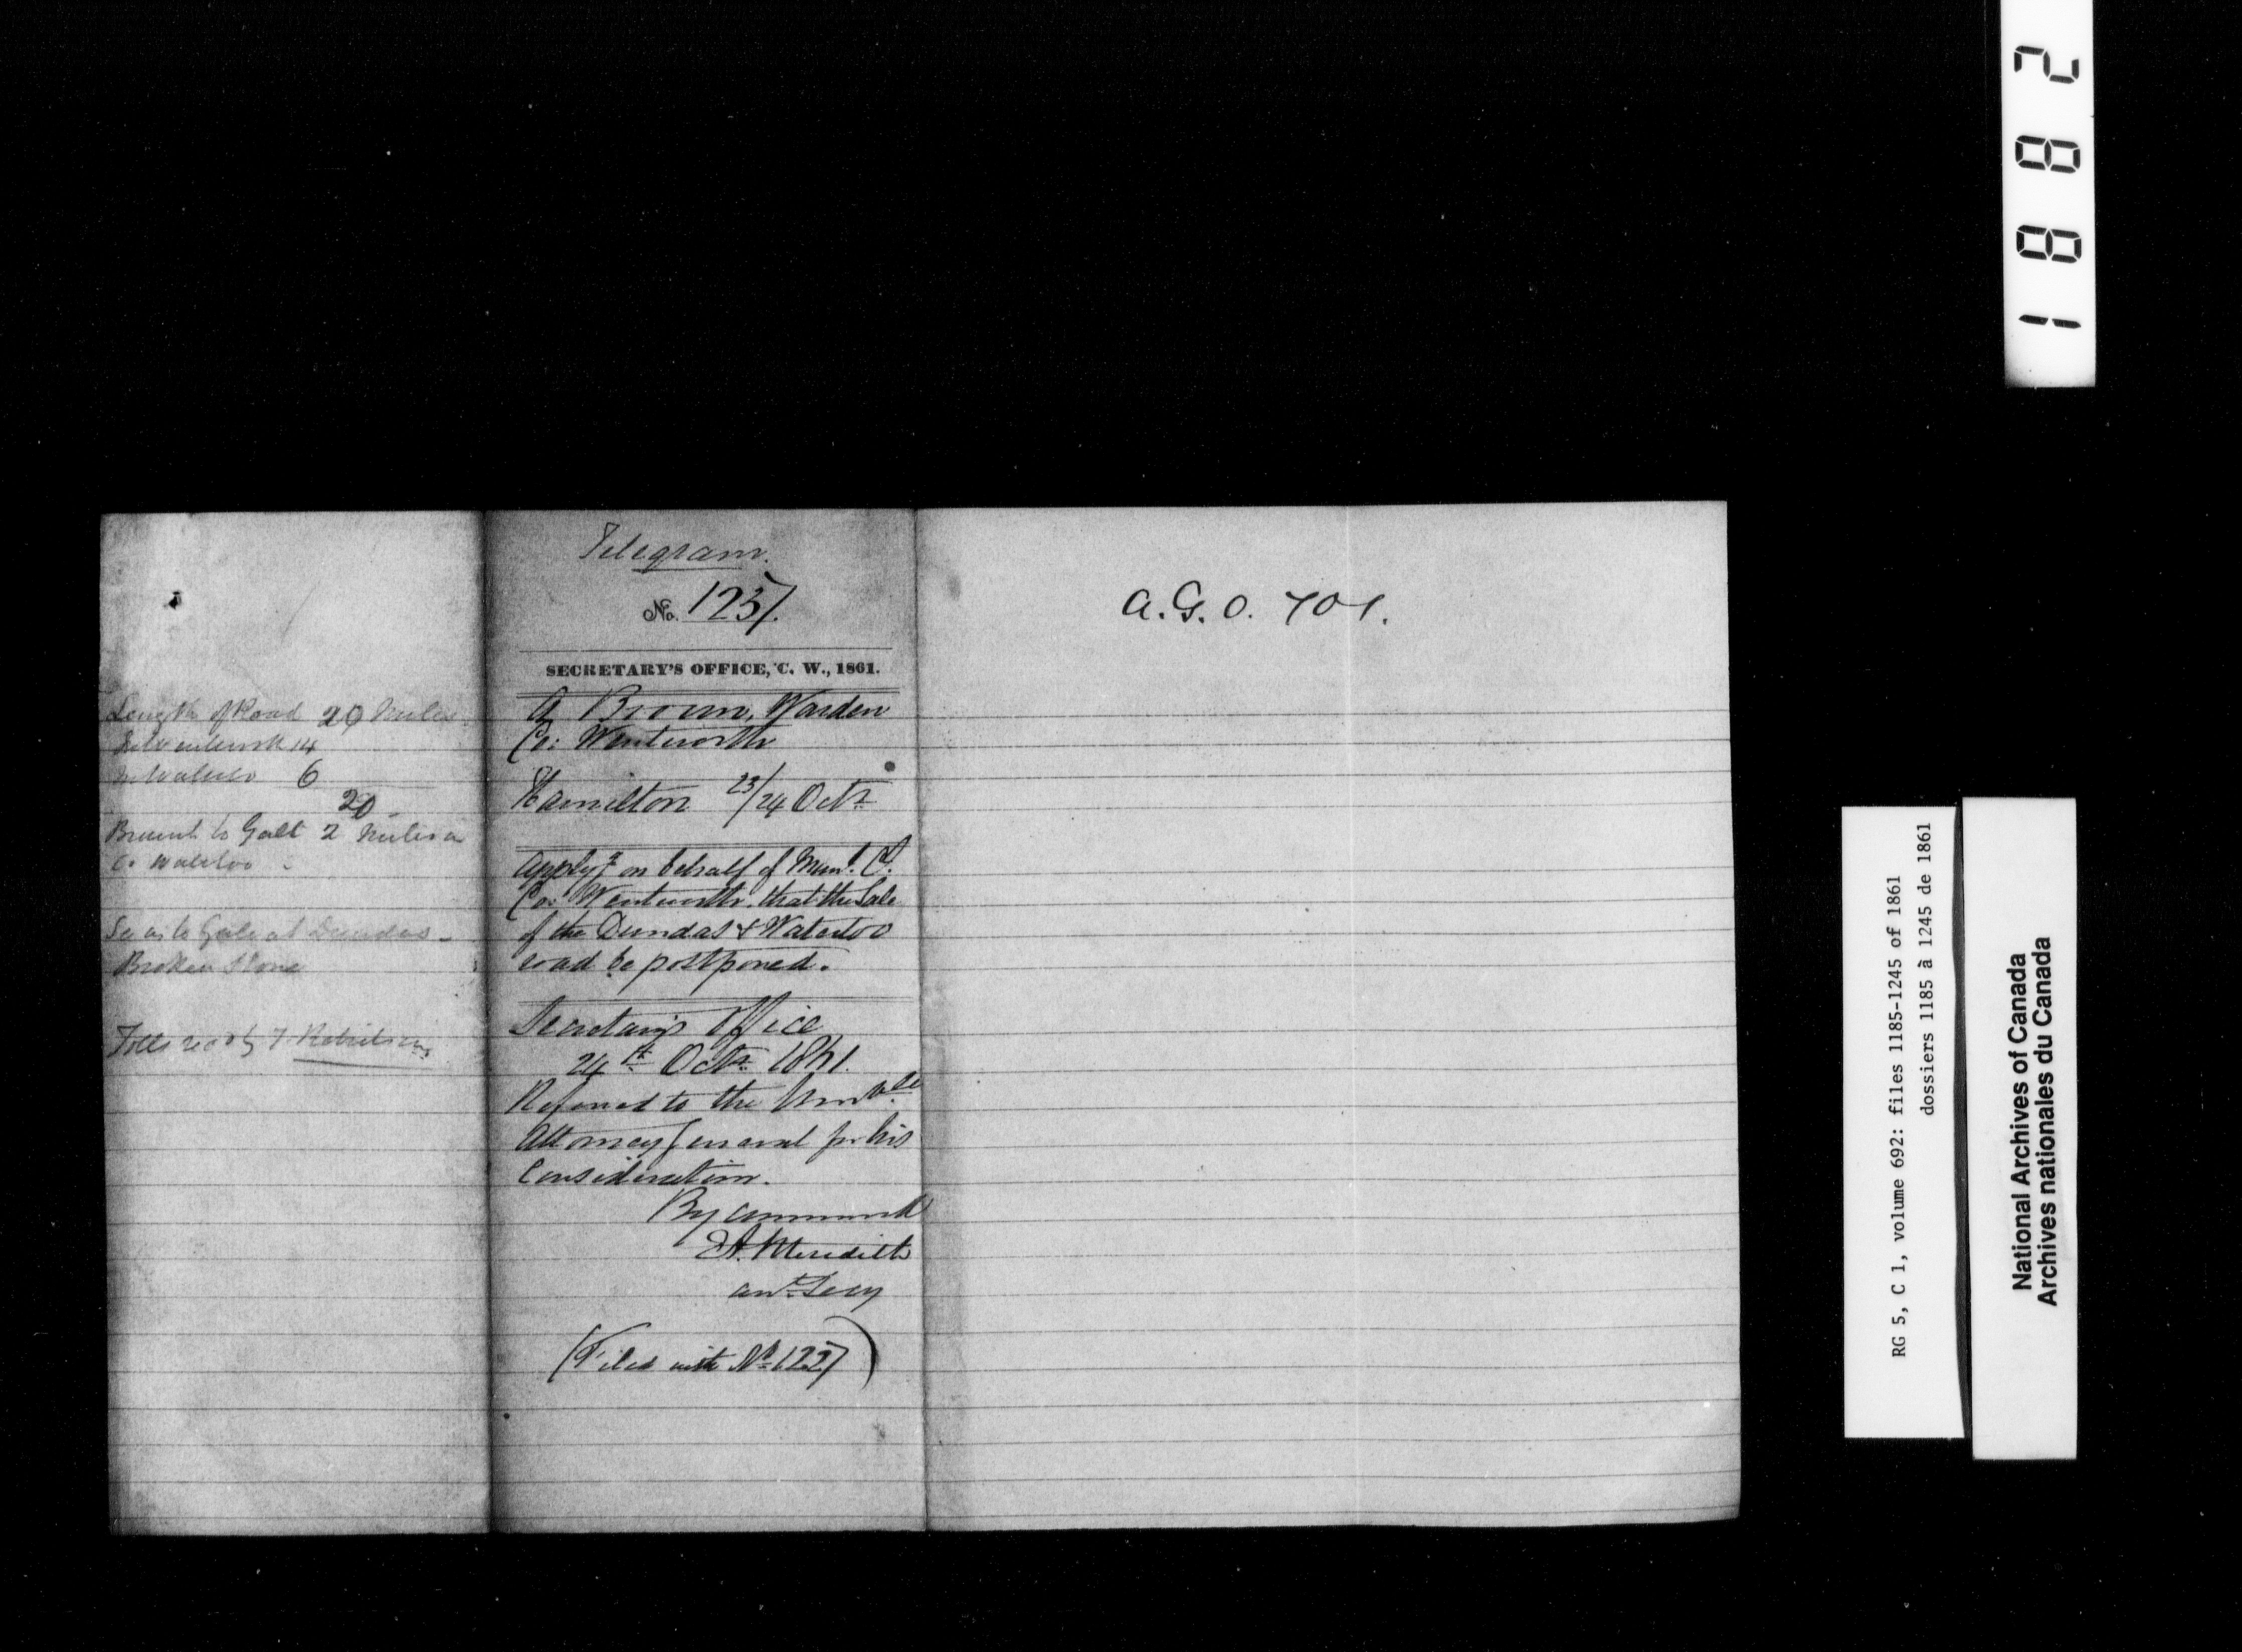 Length of Road 20 Miles
In Wentworth 14
In Waterloo 6
20
Branch to Galt 2 Miles in
Co Waterloo
See as to Gate at Dundas
Broken Stone
Telegram.
No. 1237.
SECRETARY'S OFFICE, C. W., 1861.
A Brown, Warden
Co: Wentworth
Hamilton 23/24 Octr
Applyg on behalf of Munl. Cl.
Co: Wentworth that the Sale
of the Dundas & Waterloo
road be postponed.
Secretary's Office
24th Octr 1861.
Referred to the Honble
Attorney General for his
Consideration.
By command
E A. Meredith
Asst. Secy
(Filed with No 1227)
A.G.O. 701.
1882
RG 5, C 1, volume 692: files 1185-1245 of 1861
dossiers 1185 à 1245 de 1861
National Archives of Canada
Archives nationales du Canada